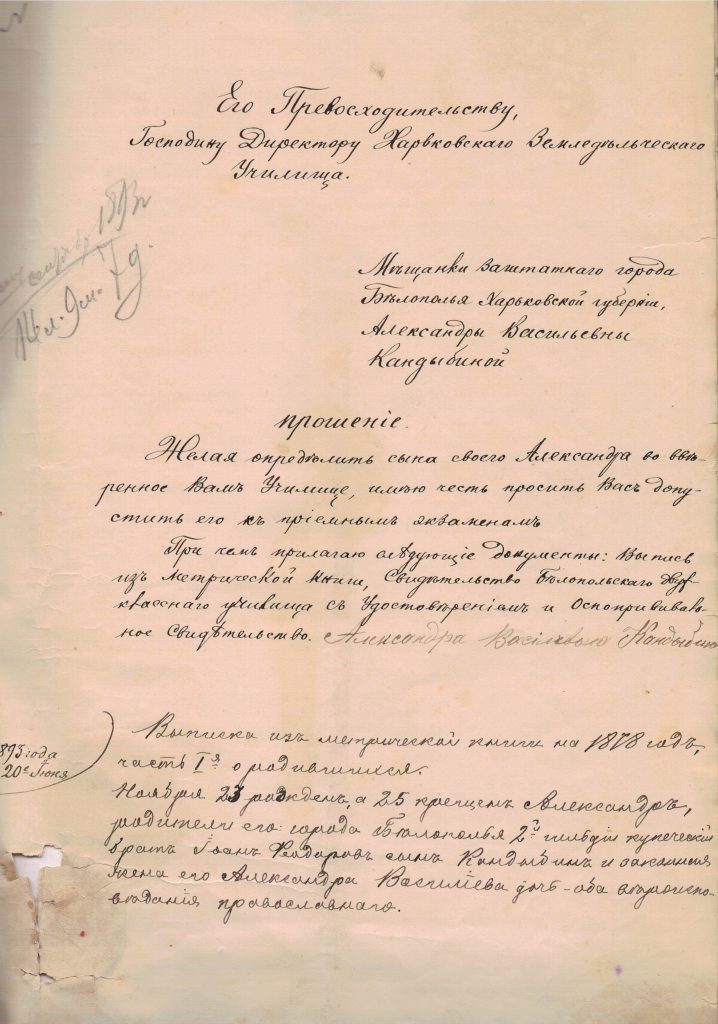 Его Превосходительству,
Господину Директору Харьковскаго Земледѣльческаго
Училища.
1893 г.
14 л. 9 м. 7 д.
Мѣщанки заштатнаго города
Бѣлополья Харьковской губерніи,
Александры Васильевны
Кандыбиной
прошеніе.
Желая опредѣлить сына своего Александра во ввѣ-
ренное Вамъ Училище, имѣю честь просить Васъ допу-
стить его къ пріемнымъ экзаменамъ
При чемъ прилагаю слѣдующіе документы: Выпись
изъ метрической книги, Свидѣтельство Бѣлопольскаго двух-
класснаго училища съ Удостовѣреніемъ и Оспопрививаль-
ное Свидѣтельство. Александра Васілевна Кандыбина
893 года
20го Іюня
Выписка изъ метрической книги на 1878 годъ,
часть Iя о родившихся.
Ноября 23 рожденъ, а 25 крещенъ Александръ,
родители его: города Бѣлополья 2й гильдіи купеческій
братъ Іоанъ Феодоровъ сынъ Кандыбинъ и законная
жена его Александра Василіева дочь - оба вѣроиспо-
вѣданія православнаго.